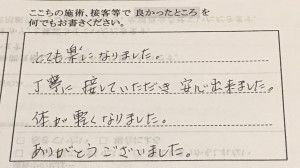 ここちの施術、接客等で 良かったところ を
何でもお書きください。
とても楽になりました。
丁寧に接していただき安心出来ました。
体が軽くなりました。
ありがとうございました。